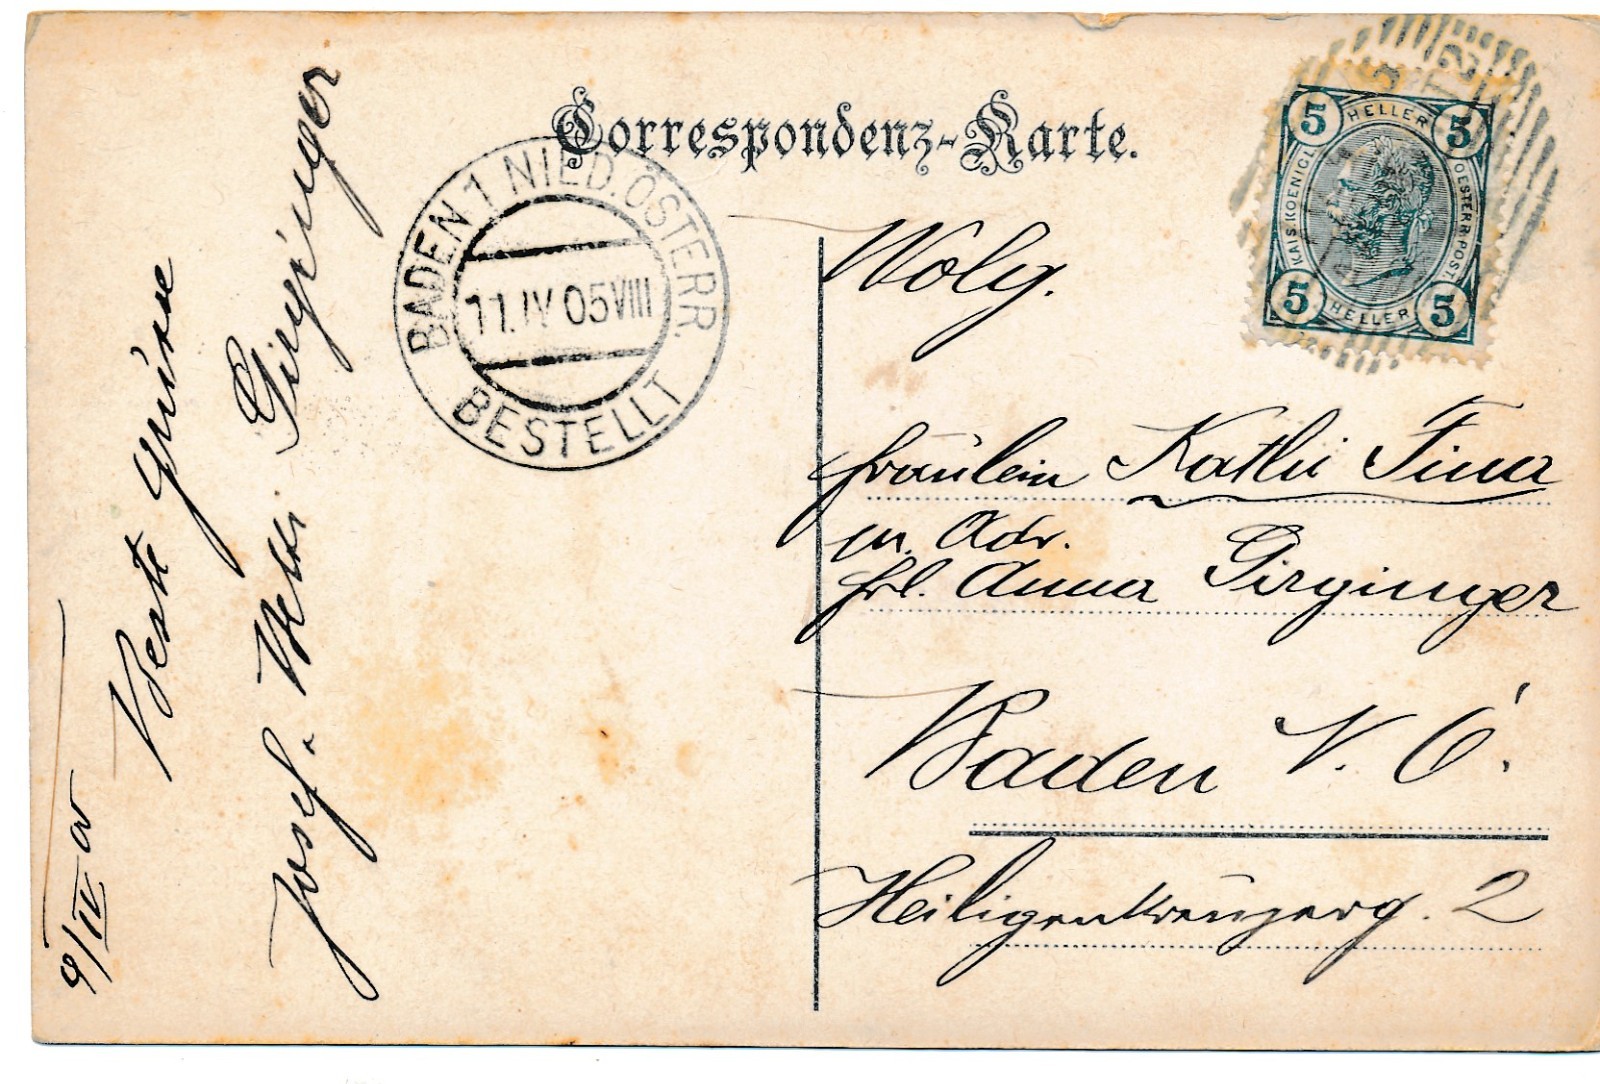 Correspondenz-Karte.
5 HELLER 5
KAIS. KOENIGL.
OESTERR. POST.
5 HELLER 5
BADEN 1 NIED. ÖSTERR.
11. IV 05 VIII
BESTELLT
9/IV 05
Beste Grüsse
Josef. Girginger
Wolg.
Fräulein Kathi Fina
p. Adr.
Frl. Anna Girginger
Baden N. Ö.
Heiligenkreuzerg. 2